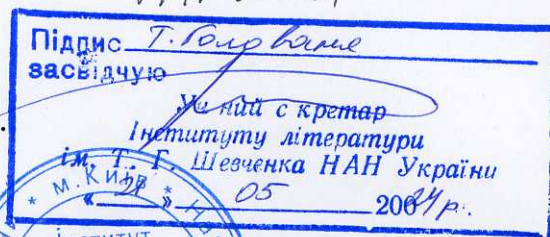 Підпис Т. Голованя
засвідчую
Учений секретар
Інституту літератури
ім. Т. Г. Шевченка НАН України
« » 05 200 р.
* м. Київ * На
інститут